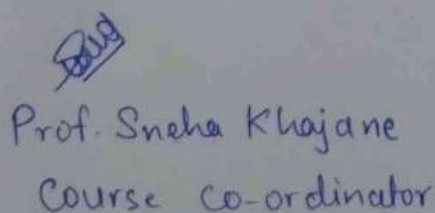 Prof. Sneha Khajane
Course co-ordinator